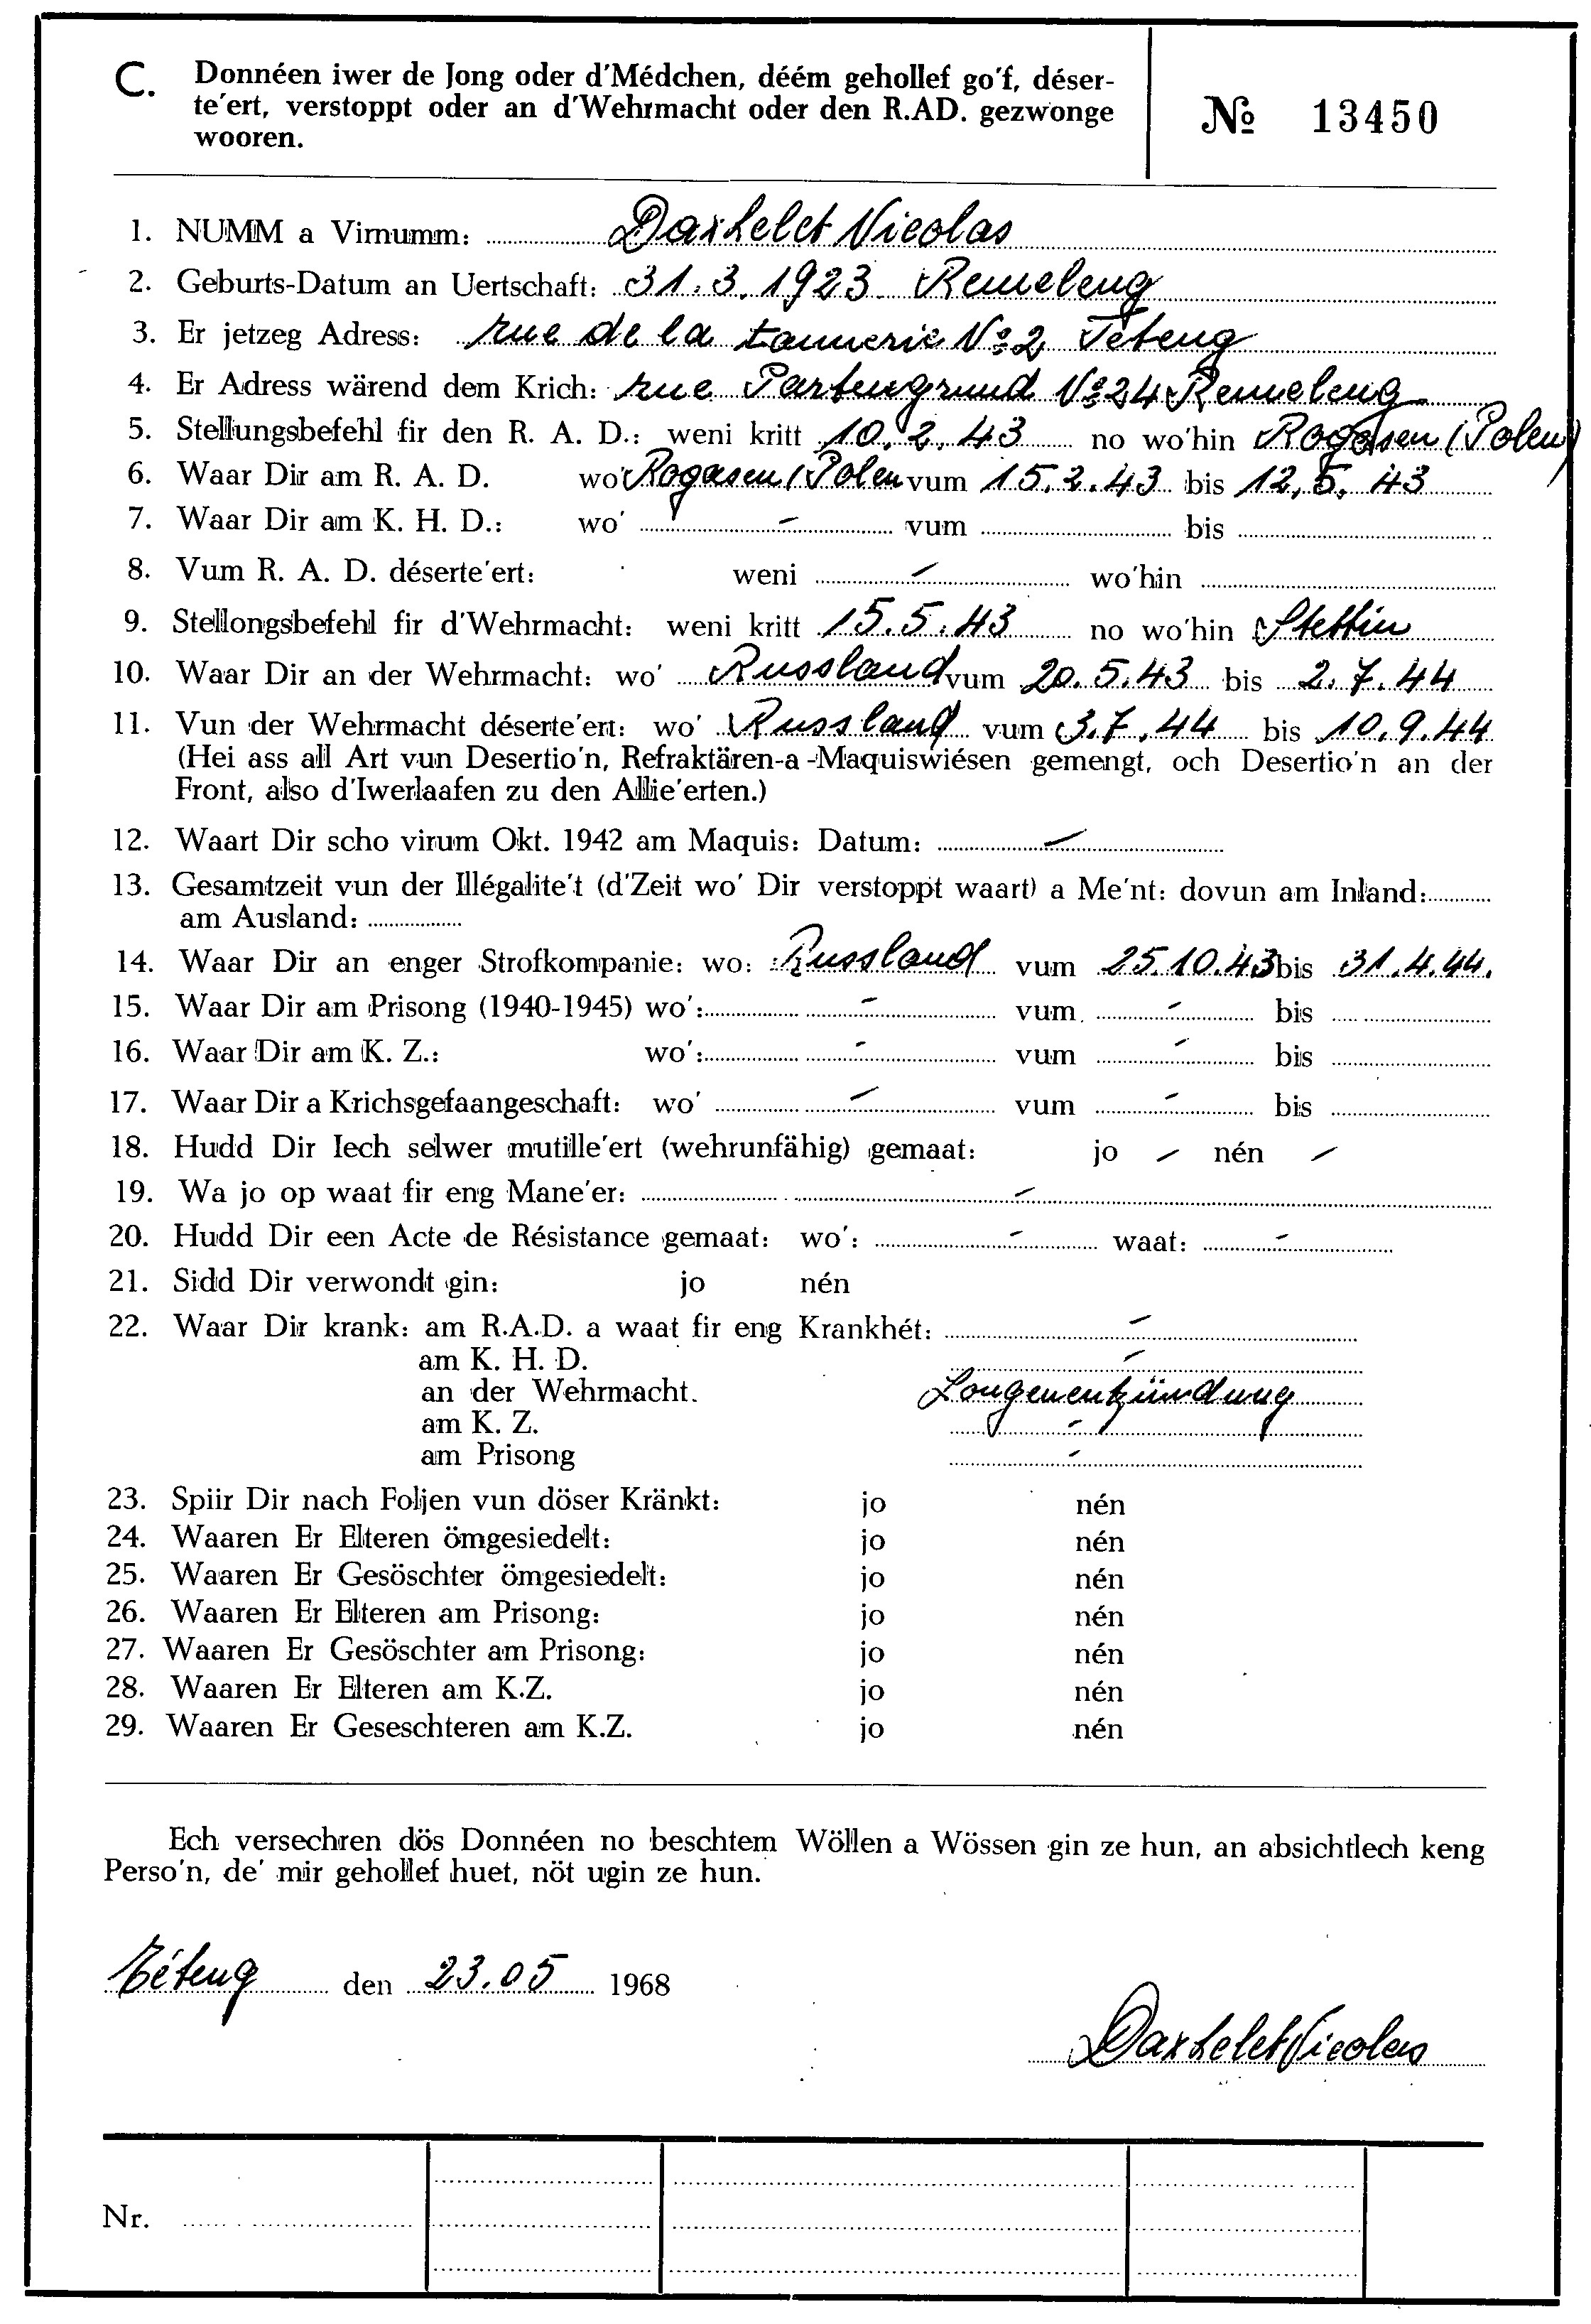 C. Donnéen iwer de Jong oder d'Médchen, déém gehollef go'f, déser-
te'ert, verstoppt oder an d'Wehrmacht oder den R.AD. gezwonge
wooren.
№ 13450
1. NUMM a Virnumm: Daxhelet Nicolas
2. Geburts-Datum an Uertschaft: 31.3.1923 Remeleng
3. Er jetzeg Adress: rue de la tannerie No 2 Téteng
4. Er Adress wärend dem Krich: rue No 24 Remeleng
5. Stellungsbefehl fir den R. A. D.: weni kritt 10.2.43 no wo'hin Rogasen (Polen)
6. Waar Dir am R. A. D. wo' Rogasen (Polen vum 15.2.43 bis 12.5.43
7. Waar Dir am K. H. D.: wo' - vum bis
8. Vum R. A. D. déserte'ert: weni - wo'hin
9. Stellongsbefehl fir d'Wehrmacht: weni kritt 15.5.43 no wo'hin Stettin
10. Waar Dir an der Wehrmacht: wo' Russland vum 20.5.43 bis 2.7.44
11. Vun der Wehrmacht déserte'ert: wo' Russland vum 3.7.44 bis 10.9.44
(Hei ass all Art vun Desertio'n, Refraktären-a-Maquiswiésen gemengt, och Desertio'n an der
Front, also d'Iwerlaafen zu den Allie'erten.)
12. Waart Dir scho virum Okt. 1942 am Maquis: Datum: -
13. Gesamtzeit vun der Illégalite't (d'Zeit wo' Dir verstoppt waart) a Me'nt: dovun am Inland:
am Ausland:
14. Waar Dir an enger Strofkompanie: wo: Russland vum 25.10.43 bis 31.4.44.
15. Waar Dir am Prisong (1940-1945) wo': - vum - bis
16. Waar Dir am K. Z.: wo': - vum - bis
17. Waar Dir a Krichsgefaangeschaft: wo' - vum - bis
18. Hudd Dir Iech selwer mutille'ert (wehrunfähig) gemaat: jo - nén -
19. Wa jo op waat fir eng Mane'er: -
20. Hudd Dir een Acte de Résistance gemaat: wo': - waat: -
21. Sidd Dir verwondt gin: jo nén
22. Waar Dir krank: am R.A.D. a waat fir eng Krankhét: -
am K. H. D. -
an der Wehrmacht. Longenentzündung
am K. Z. -
am Prisong -
23. Spiir Dir nach Foljen vun döser Kränkt: jo nén
24. Waaren Er Elteren ömgesiedelt: jo nén
25. Waaren Er Gesöschter ömgesiedelt: jo nén
26. Waaren Er Elteren am Prisong: jo nén
27. Waaren Er Gesöschter am Prisong: jo nén
28. Waaren Er Elteren am K.Z. jo nén
29. Waaren Er Geseschteren am K.Z. jo nén
Ech versechren dös Donnéen no beschtem Wöllen a Wössen gin ze hun, an absichtlech keng
Perso'n, de' mir gehollef huet, nöt ugin ze hun.
Téteng den 23.05 1968
Daxhelet Nicolas
Nr.